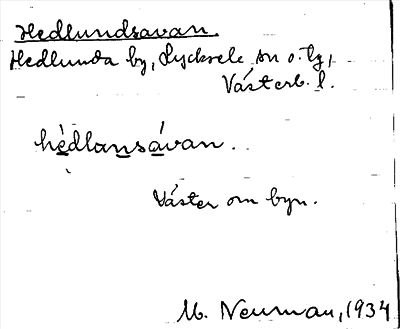 Hedlundsavan.
Hedlunda by, Lycksele sn o. lg,
Västerb. l.
hèdlansávan.
Väster om byn.
M. Neuman, 1934